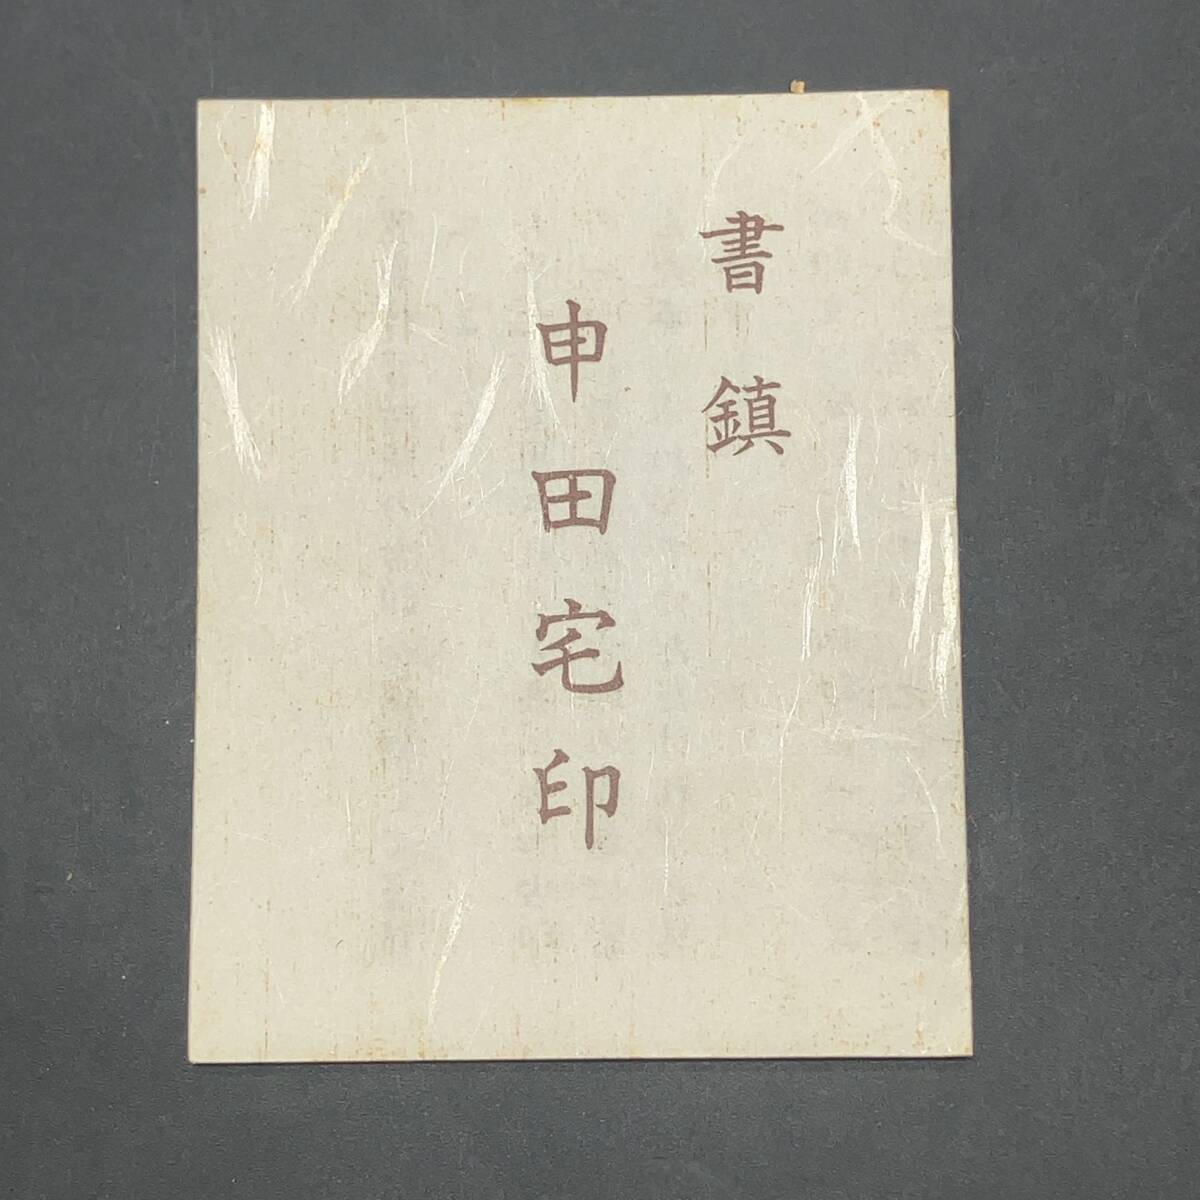 書鎮
申田宅印